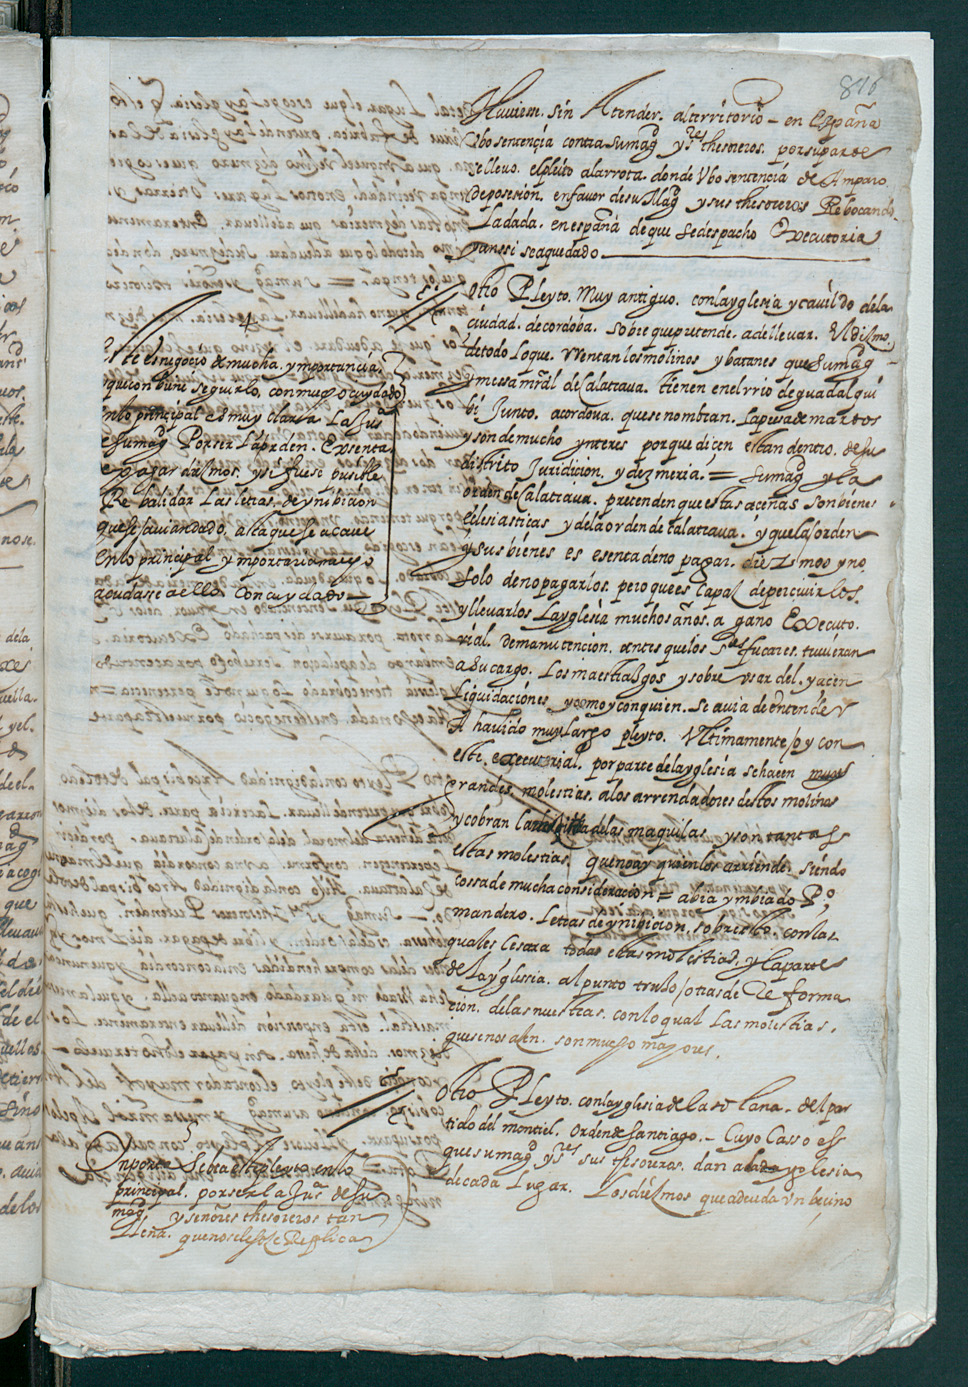 816
Huviem. sin Atender. alterritorio – en España
Vbo sentençia contra sumagd y sus thesoreros. por su parte
se llevo. el pleito a la rrota. donde Vbo sentencia de Amparo
de posesion. en favor de su Magd y sus thesoreros Rebocando
La dada. en españa de que se despacho Executoria
y anssi se a quedado
Otro Pleyto. Muy antiguo. con la yglesia y cavildo de la
ciudad. de cordoba. sobre que pretende. a de llevar. El diesmo,
de todo Lo que. Rentan los molinos y batanes que sumagd
y messa mrāl de Calatrava. tienen en el rrio de guadalqui
bi Junto. a cordova. que se nombran. La pressa de martos
y son de mucho ynteres porque dicen estan dentro. de su
distrito Juridicion, y dezmeria, = sumagd y la
orden de Calatrava. pretenden que estas aceñas son bienes
eclesiasticas y de la orden de calatrava. y que la orden
y sus bienes es esenta de no pagar. diezmos y no
solo de no pagarlos. pero que es Capal de perçivirlos.
y llevarlos La yglesia muchos años. a gano Executo.
rial. de manutencion. antes que los Sres fucares. tuvieran
a su cargo. Los maestrasgos y sobre usar del. y acen
Liquidaciones y como y con quien. se avia de entender
A havido muy largo pleyto. Ultimamente oy con
este. executorial. por parte de la yglesia se hacen muy
grandes. molestias. a los arrendadores destos molinos
y cobran la de las maquilas y son tantas
estas molestias. que no ay quien los arriende. siendo
cossa de mucha consideracion = abia ymbiado Po
mandero. Letras de ynibicion. sobre esto. con las
quales Cesara todas estas molestias, y la parte
de la yglesia. al punto truxo otras de Reforma
cion. de las nuestras. con lo qual Las molestias.
que se nos acen. son mucho mayores.
Otro Pleyto. con la yglesia de la solana. del par
tido del montiel. orden de santiago. – Cuyo Casso es
que sumagd y Sres sus thesoreros. dan a cada yglesia
de cada Lugar. Los diesmos que adeuda Un becino
Este es negocio de mucha. ymportancia
que conbiene seguirlo, con mucho cuydado
en lo principal es muy clara La Jusa
de sumagd Por ser La orden. Exsenta
de pagar diesmos. y si fuese pusible
Rebalidar Las letras. de ynibicion
que se avian dado. asta que se acave
en lo principal y ymportaria
a ello Con cuydado
ynporta este pleyto en lo
principal. por ser la Jusa de su
magd y señores thesoreros tan
llena. que no se le puede Replicar